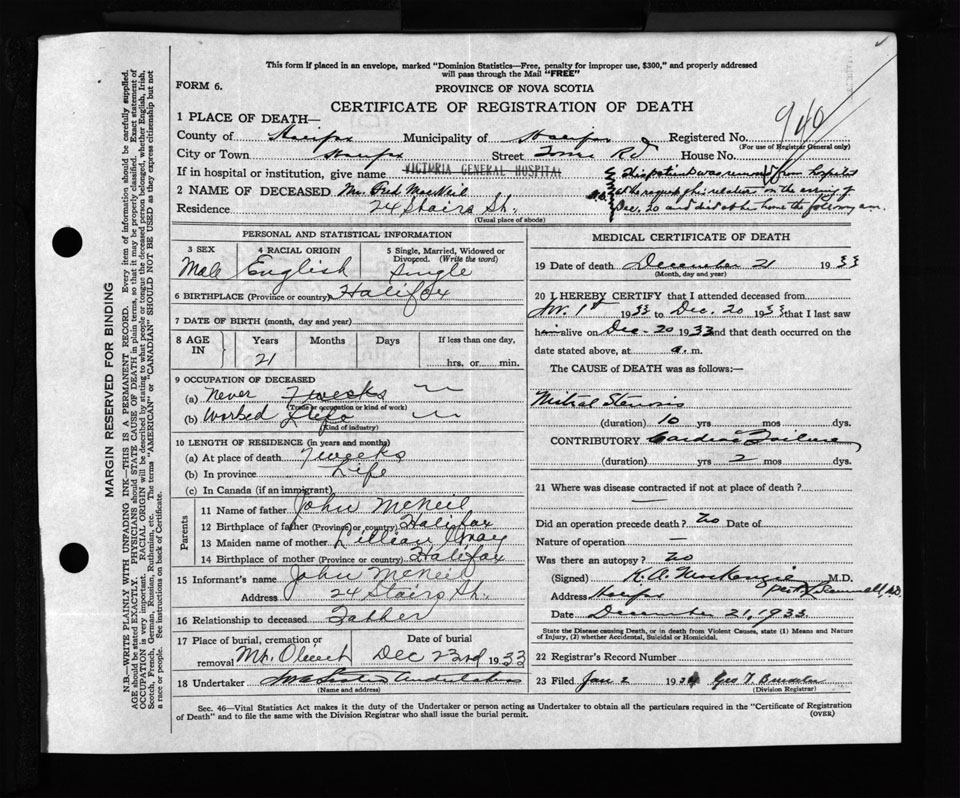 This form if placed in an envelope, marked "Dominion Statistics—Free, penalty for improper use, $300," and properly addressed
will pass through the Mail "FREE"
FORM 6.
PROVINCE OF NOVA SCOTIA
CERTIFICATE OF REGISTRATION OF DEATH
940
1 PLACE OF DEATH—
County of Halifax Municipality of Halifax Registered No.
(For use of Registrar General only)
City or Town Halifax Street Tower Rd House No.
If in hospital or institution, give name VICTORIA GENERAL HOSPITAL
This patient was removed from hospital
at the request of his relatives on the evening of
Dec. 20 and died at his home the following a.m.
2 NAME OF DECEASED Mr. Fred MacNeil
Residence 24 Stairs St.
(Usual place of abode)
PERSONAL AND STATISTICAL INFORMATION
3 SEX 4 RACIAL ORIGIN 5 Single, Married, Widowed or Divorced. (Write the word)
Male English Single
6 BIRTHPLACE (Province or country) Halifax
7 DATE OF BIRTH (month, day and year)
8 AGE IN Years Months Days If less than one day,
21 hrs. or min.
9 OCCUPATION OF DECEASED
(a) Never 7 weeks
(Trade or occupation or kind of work)
(b) Worked Life
(Kind of industry)
10 LENGTH OF RESIDENCE (in years and months)
(a) At place of death 7 weeks
(b) In province Life
(c) In Canada (if an immigrant)
Parents
11 Name of father John McNeil
12 Birthplace of father (Province or country) Halifax
13 Maiden name of mother Lillian Gray
14 Birthplace of mother (Province or country) Halifax
15 Informant's name John McNeil
Address 24 Stairs St.
16 Relationship to deceased Father
17 Place of burial, cremation or removal Mt. Olivet Date of burial Dec 23rd 1933
18 Undertaker Undertaker
(Name and address)
MEDICAL CERTIFICATE OF DEATH
19 Date of death December 21 1933
(Month, day and year)
20 I HEREBY CERTIFY that I attended deceased from
Nov. 1st 1933 to Dec. 20 1933 that I last saw
him alive on Dec. 20 1933 and that death occurred on the
date stated above, at a. m.
The CAUSE of DEATH was as follows:—
Mitral Stenosis
(duration) 10 yrs mos dys.
CONTRIBUTORY Cardiac Failure
(duration) yrs 2 mos dys.
21 Where was disease contracted if not at place of death?
—
Did an operation precede death? No Date of
Nature of operation —
Was there an autopsy? No
(Signed) K. A. MacKenzie M.D.
Address Halifax per
Date December 21, 1933.
State the Disease causing Death, or in death from Violent Causes, state (1) Means and Nature
of Injury, (2) whether Accidental, Suicidal or Homicidal.
22 Registrar's Record Number
23 Filed Jan 2 1934 Geo
(Division Registrar)
Sec. 46—Vital Statistics Act makes it the duty of the Undertaker or person acting as Undertaker to obtain all the particulars required in the "Certificate of Registration
of Death" and to file the same with the Division Registrar who shall issue the burial permit.
(OVER)
MARGIN RESERVED FOR BINDING
N.B.—WRITE PLAINLY WITH UNFADING INK—THIS IS A PERMANENT RECORD. Every item of information should be carefully supplied.
AGE should be stated EXACTLY. PHYSICIANS should STATE CAUSE OF DEATH in plain terms, so that it may be properly classified. Exact statement of
OCCUPATION is very important. RACIAL ORIGIN will be described by stating to what people or tongue the deceased person belonged, whether English, Irish,
Scotch, French, German, Russian, Ruthenian, etc. The terms "AMERICAN" or "CANADIAN" SHOULD NOT BE USED as they express citizenship but not
a race or people. See instructions on back of Certificate.